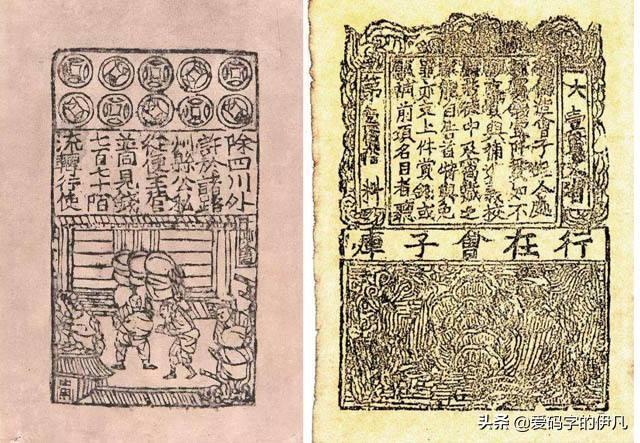 除四川外
許於諸路
州縣公私
從便主管
並同見錢
七百七十陌
流轉行使
大壹貫文省
敕偽造會子犯人處
斬賞錢壹阡貫如不
願支賞與補進義校
尉若徒中及窩藏之
家能自告首特與免
罪亦支上件賞錢或
願補前項名目者聽
第料
行在會子庫
头条 @爱码字的伊凡